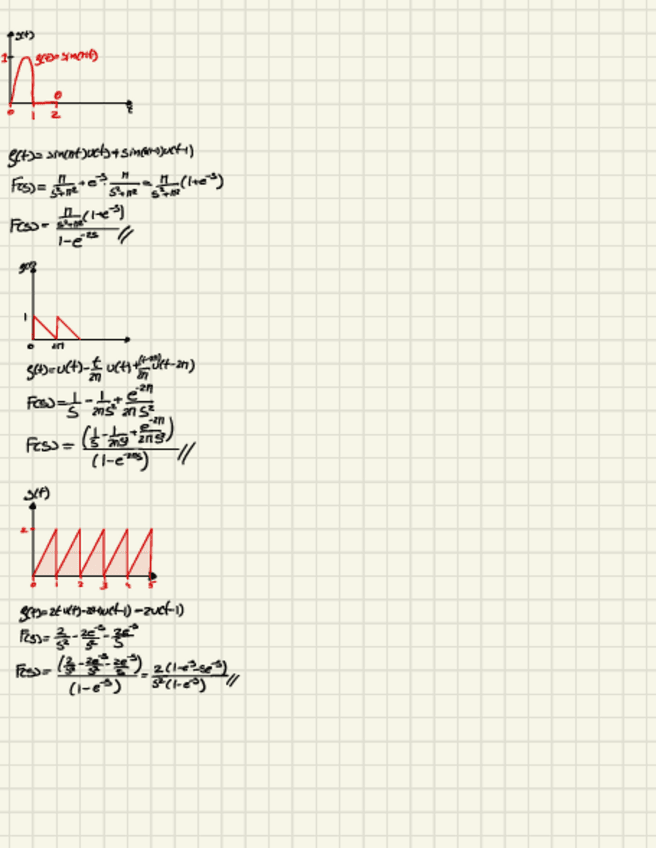 g(t)
1
g(t)=sin(πt)
0
0 1 2
t
g(t)=sin(πt)u(t)+sin(π(t-1))u(t-1)
F(s)= π/(s²+π²) + e^-s · π/(s²+π²) = π/(s²+π²) (1+e^-s)
F(s)= (π/(s²+π²) (1+e^-s))/(1-e^-2s) //
g(t)
1
0 2π
g(t)=u(t)- t/2π u(t)+ (t-2π)/2π u(t-2π)
F(s)= 1/s - 1/2πs² + e^-2π/2πs²
F(s)= (1/s - 1/2πs² + e^-2π/2πs²)/(1-e^-2πs) //
g(t)
2
0 1 2 3 4 5
F(s)= 2/s² - 2e^-s/s² - 2e^-s/s
F(s)= (2/s² - 2e^-s/s² - 2e^-s/s)/(1-e^-s) = 2(1-e^-s-se^-s)/s²(1-e^-s) //